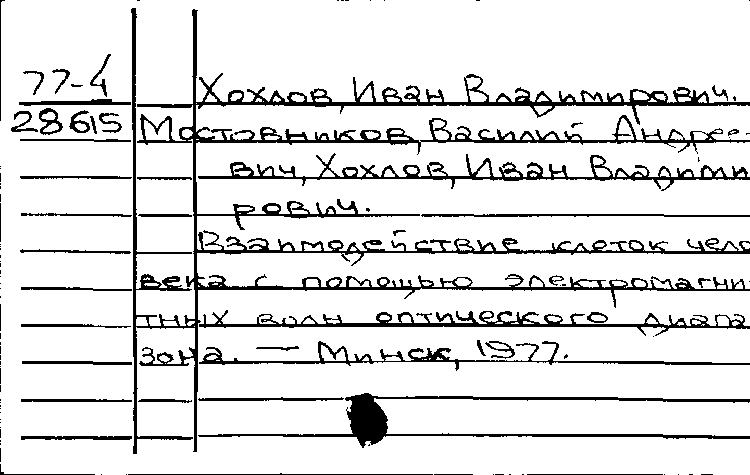 77-4
Хохлов, Иван Владимирович.
28615
Мостовников, Василий Андрее-
вич, Хохлов, Иван Владими
рович.
Взаимодействие клеток чело
века с помощью электромагни
тных волн оптического диапа
зона. — Минск, 1977.